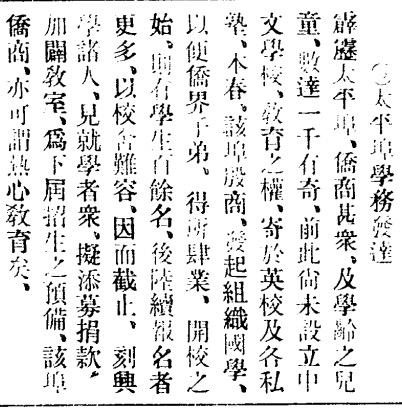 ◎太平埠學務發達
霹靂太平埠、僑商甚衆、及學齡之兒
童、數達一千有奇、前此尙未設立中
文學校、敎育之權、寄於英校及各私
塾、本春、該埠殷商、發起組織國學、
以便僑界子弟、得所肄業、開校之
始、則有學生百餘名、後陸續報名者
更多、以校舍難容、因而截止、刻興
學諸人、見就學者衆、擬添募捐款、
加闢敎室、爲下屆招生之預備、該埠
僑商、亦可謂熱心敎育矣、